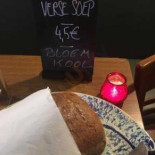 VERSE SOEP
4,5€
BLOEM
KOOL